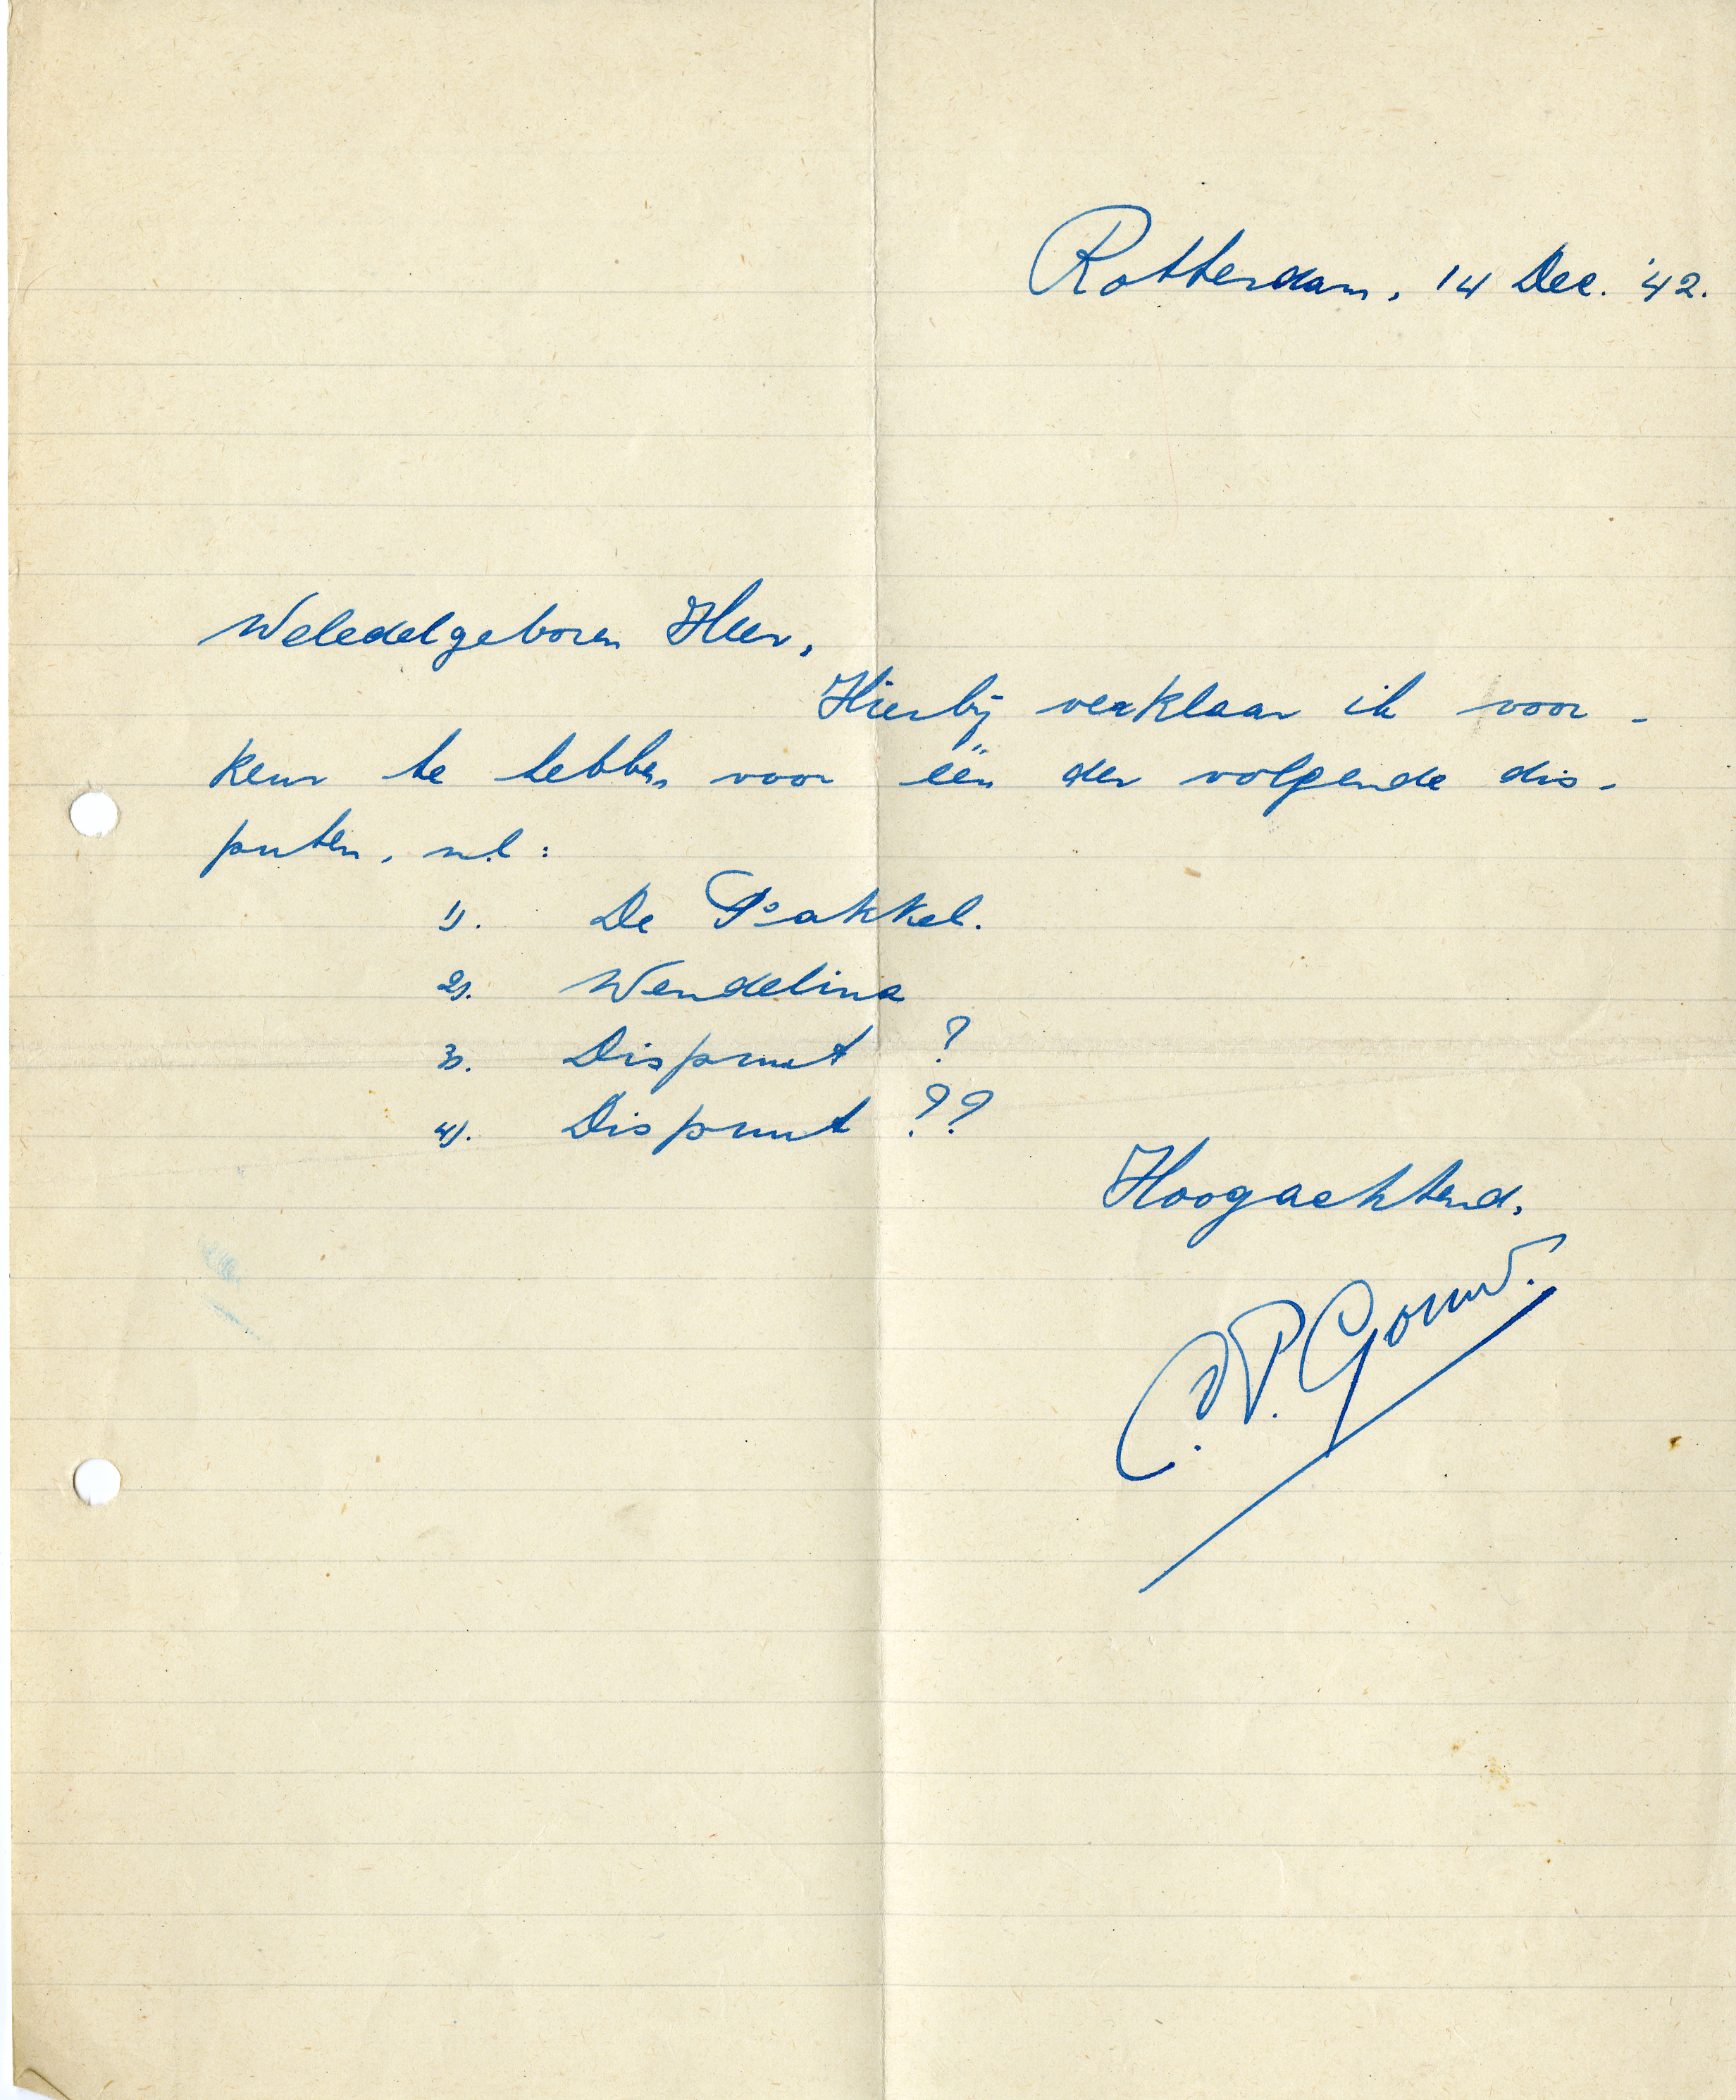 Rotterdam, 14 Dec. '42.
Weledelgeboren Heer,
Hierbij verklaar ik voor-
keur te hebben voor één der volgende dis-
puten, n.l:
1). De
2). Wendelina
3). Dispuut ?
4). Dispuut ??
Hoogachtend,